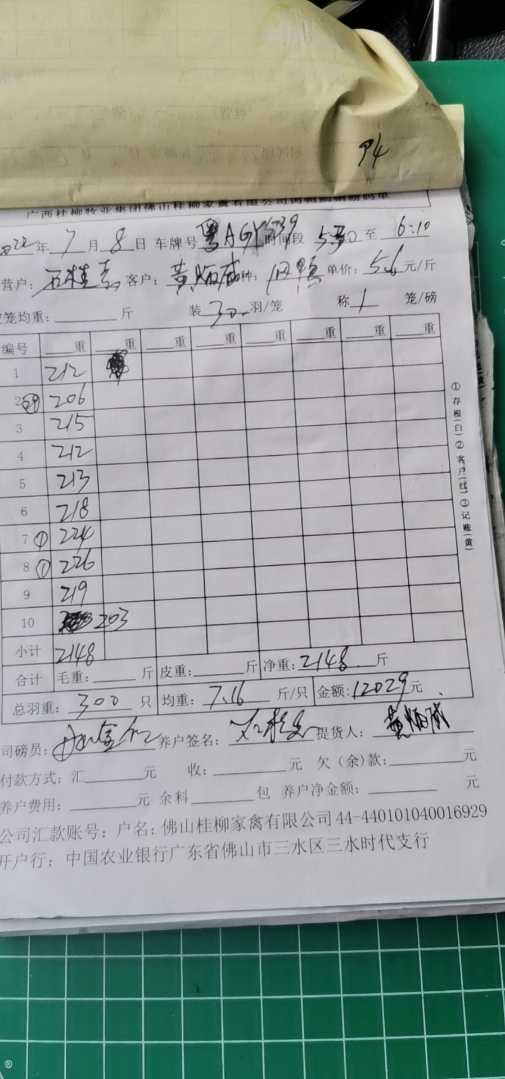 P4
广西桂柳牧业集团佛山桂柳家禽有限公司肉鸭回销磅码单
2022年 7月 8日 车牌号 粤AGY739 时间段 5:50 至 6:10
营户: 客户: 黄炳威 种: 单价: 5.6 元/斤
笼均重: 斤 装 30 羽/笼 称 1 笼/磅
编号 重 重 重 重 重 重 重 重
1 212
2 206
3 215
4 212
5 213
6 218
7 ① 224
8 ① 226
9 219
10 203
小计 2148
合计 毛重: 斤 皮重: 斤 净重: 2148 斤
总羽重: 300 只 均重: 7.16 斤/只 金额: 12029 元
司磅员: 养户签名: 提货人: 黄炳威
付款方式: 汇 元 收: 元 欠(余)款: 元
养户费用: 元 余料 包 养户净金额: 元
公司汇款账号: 户名: 佛山桂柳家禽有限公司 44-440101040016929
开户行: 中国农业银行广东省佛山市三水区三水时代支行
①存根(白)②客户(红)③记账(黄)